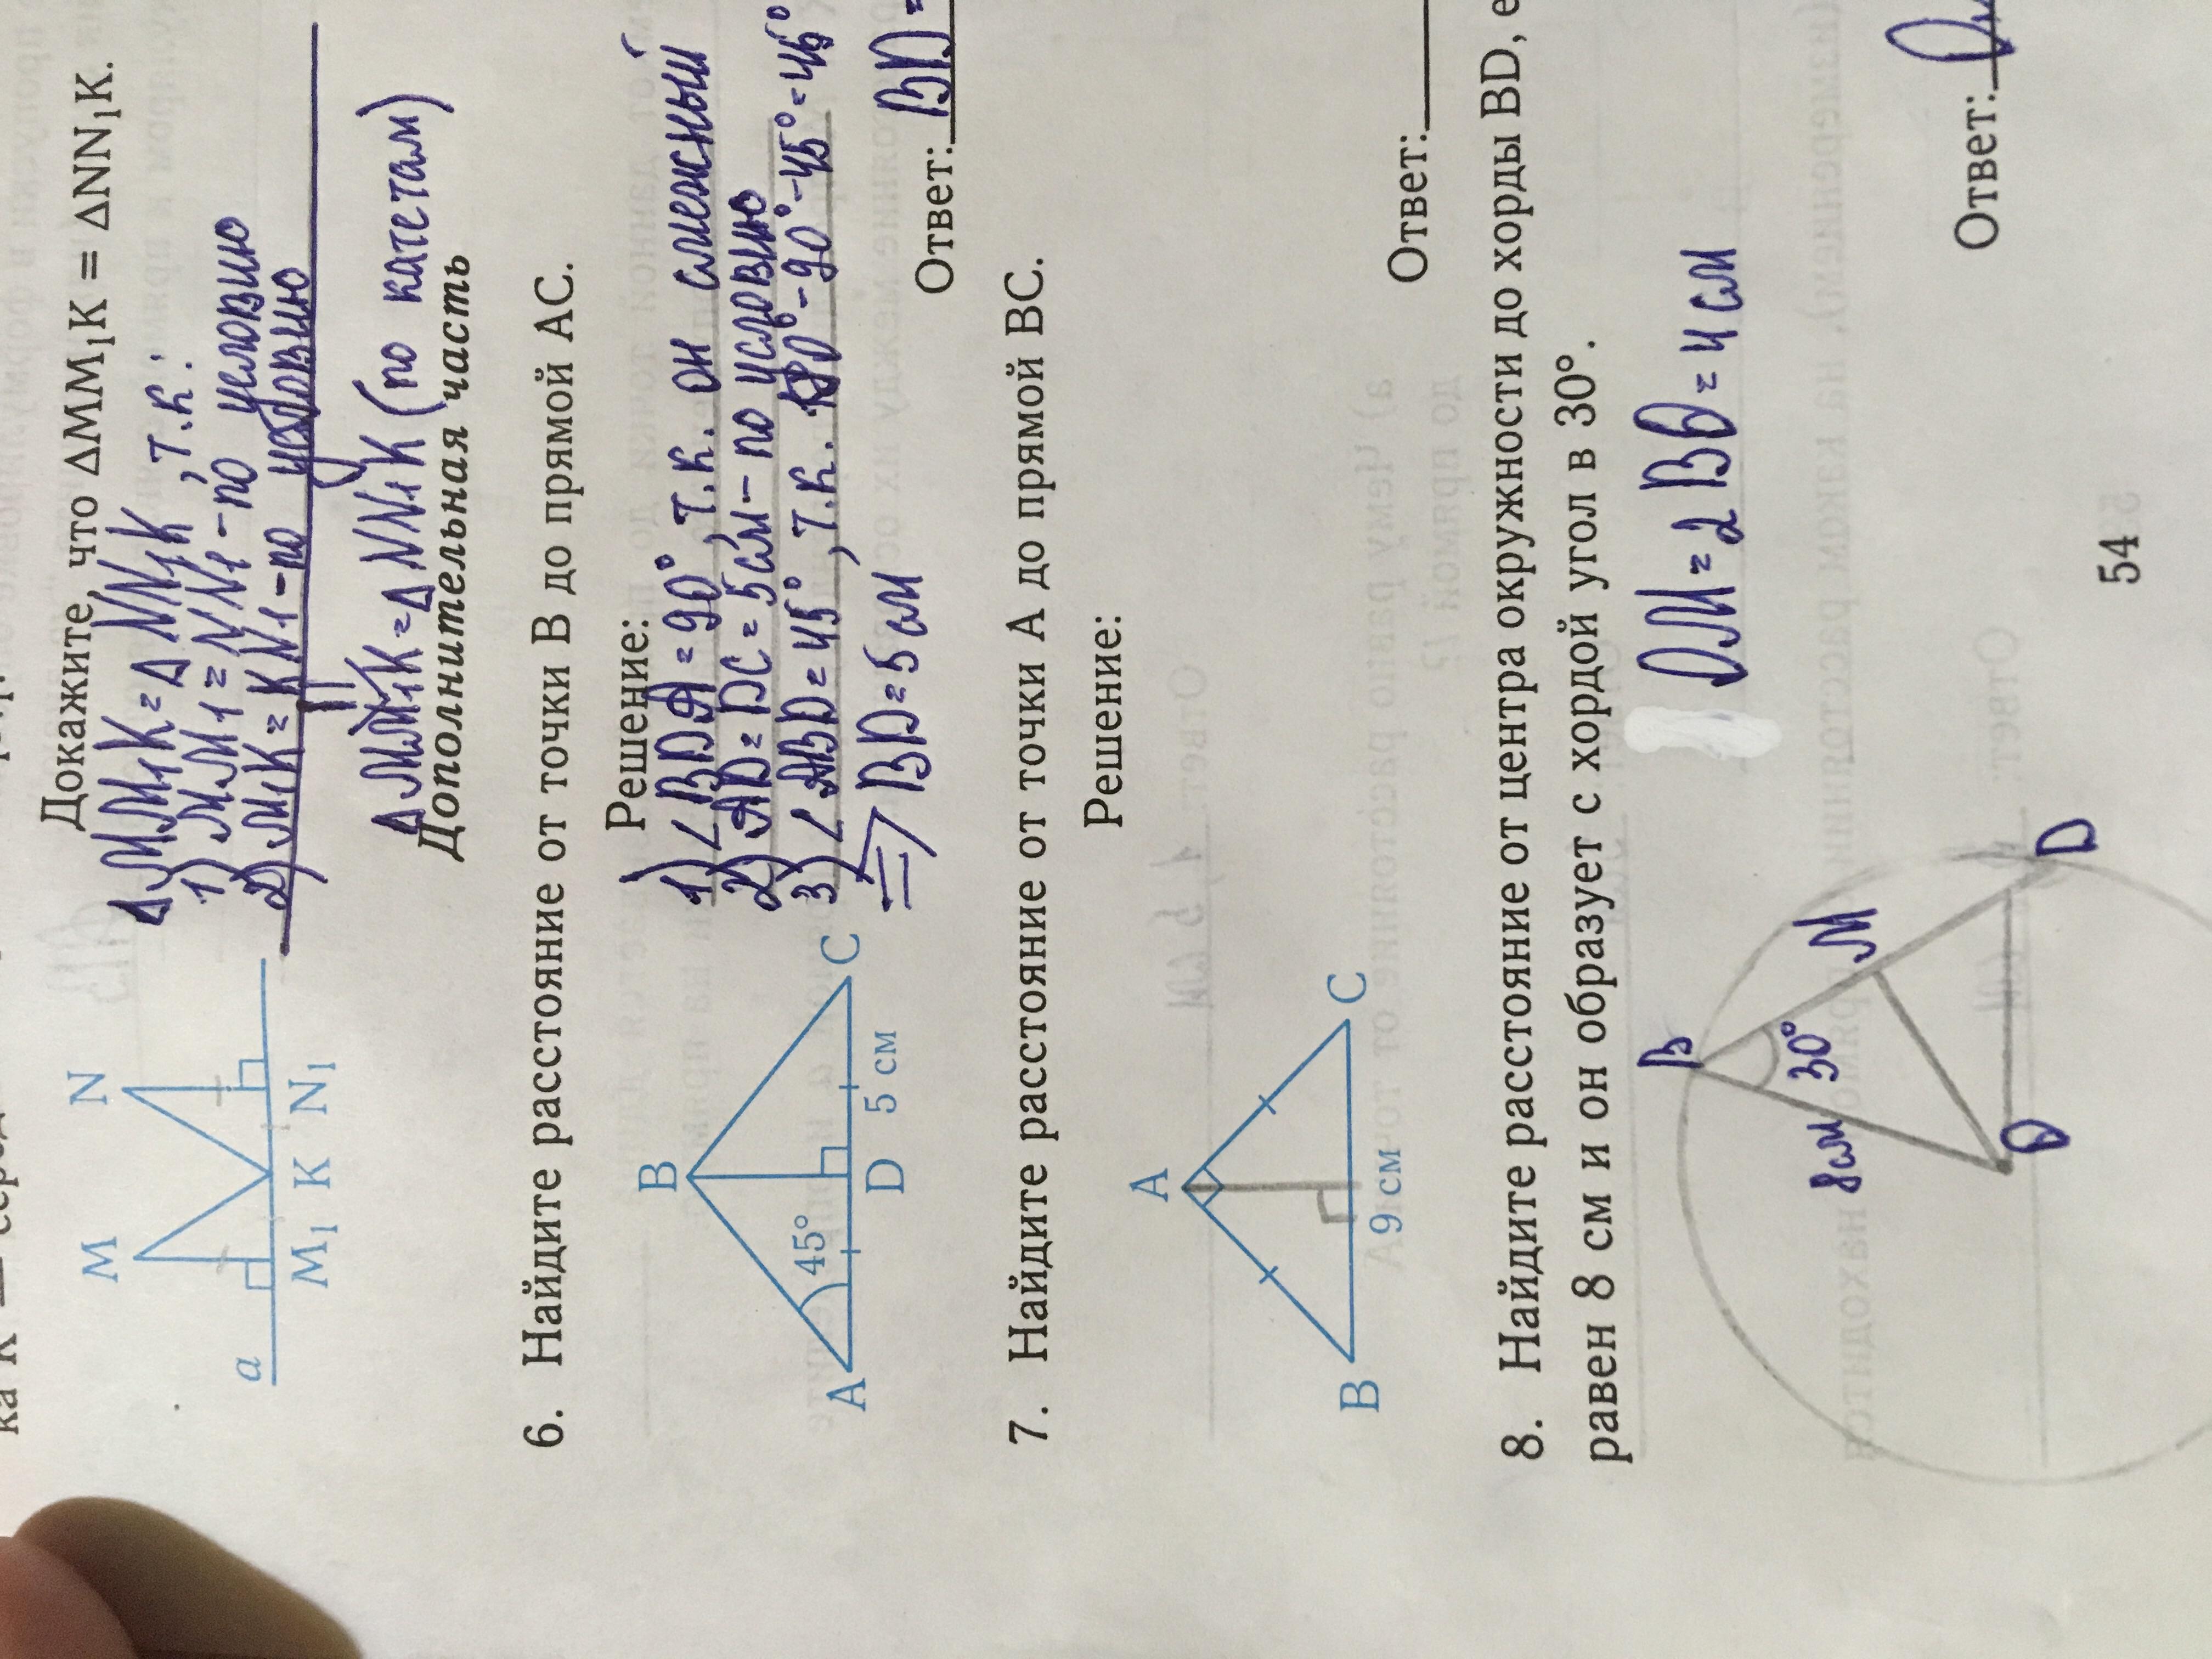 Докажите, что ΔMM₁K = ΔNN₁K.
ΔMM₁K = ΔNN₁K, т.к.:
1) MM₁ = NN₁ - по условию
2) M₁K = KN₁ - по условию
ΔMM₁K = ΔNN₁K (по катетам)
M
N
a
M₁
K
N₁
Дополнительная часть
6. Найдите расстояние от точки B до прямой AC.
Решение:
1) ∠BDA = 90°, т.к. он смежный
2) AD = DC = 5см - по условию
3) ∠ABD = 45°, т.к. 180° - 90° - 45° = 45°
=> BD = 5 см
B
45°
A
D
5 см
C
Ответ: BD =
7. Найдите расстояние от точки A до прямой BC.
Решение:
A
B
9 см
C
Ответ:
8. Найдите расстояние от центра окружности до хорды BD, е
равен 8 см и он образует с хордой угол в 30°.
B
8см 30°
M
O
D
Ответ:
54